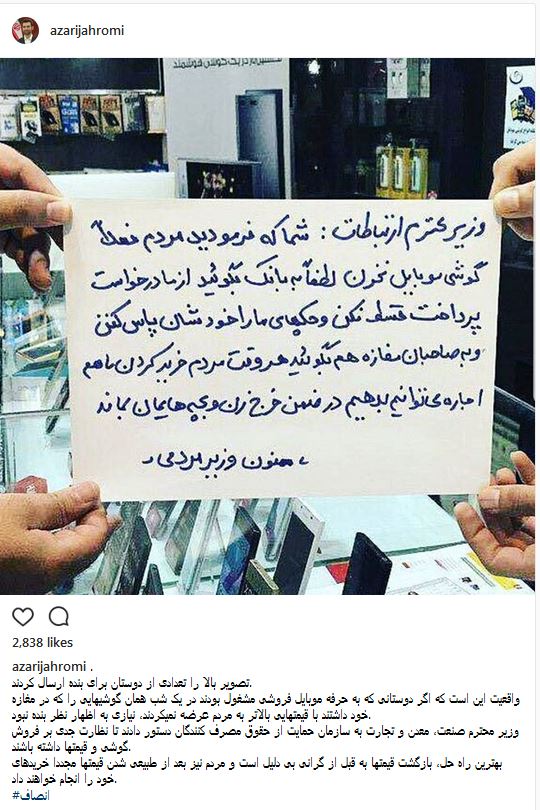 azarijahromi
هستین مار در یک گوشی هوشمند
وزیر محترم ارتباطات: شما که فرمودید مردم فعلاً
گوشی موبایل نخرن لطفاً به بانک بگوئید از ما درخواست
پرداخت قسط نکن و چکهای ما را خودشان پاس کنن
و به صاحبان مغازه هم بگوئید هر وقت مردم خرید کردن ما هم
اجاره می توانیم بدهیم در ضمن خرج زن و بچه هایمان بماند
، ممنون وزیر مردمی ،
2,838 likes
azarijahromi .
تصویر بالا را تعدادی از دوستان برای بنده ارسال کردند.
واقعیت این است که اگر دوستانی که به حرفه موبایل فروشی مشغول بودند در یک شب همان گوشیهایی را که در مغازه
خود داشتند با قیمتهایی بالاتر به مردم عرضه نمیکردند، نیازی به اظهار نظر بنده نبود.
وزیر محترم صنعت، معدن و تجارت به سازمان حمایت از حقوق مصرف کنندگان دستور دادند تا نظارت جدی بر فروش
گوشی و قیمتها داشته باشند.
بهترین راه حل، بازگشت قیمتها به قبل از گرانی بی دلیل است و مردم نیز بعد از طبیعی شدن قیمتها مجددا خریدهای
خود را انجام خواهند داد.
#انصاف